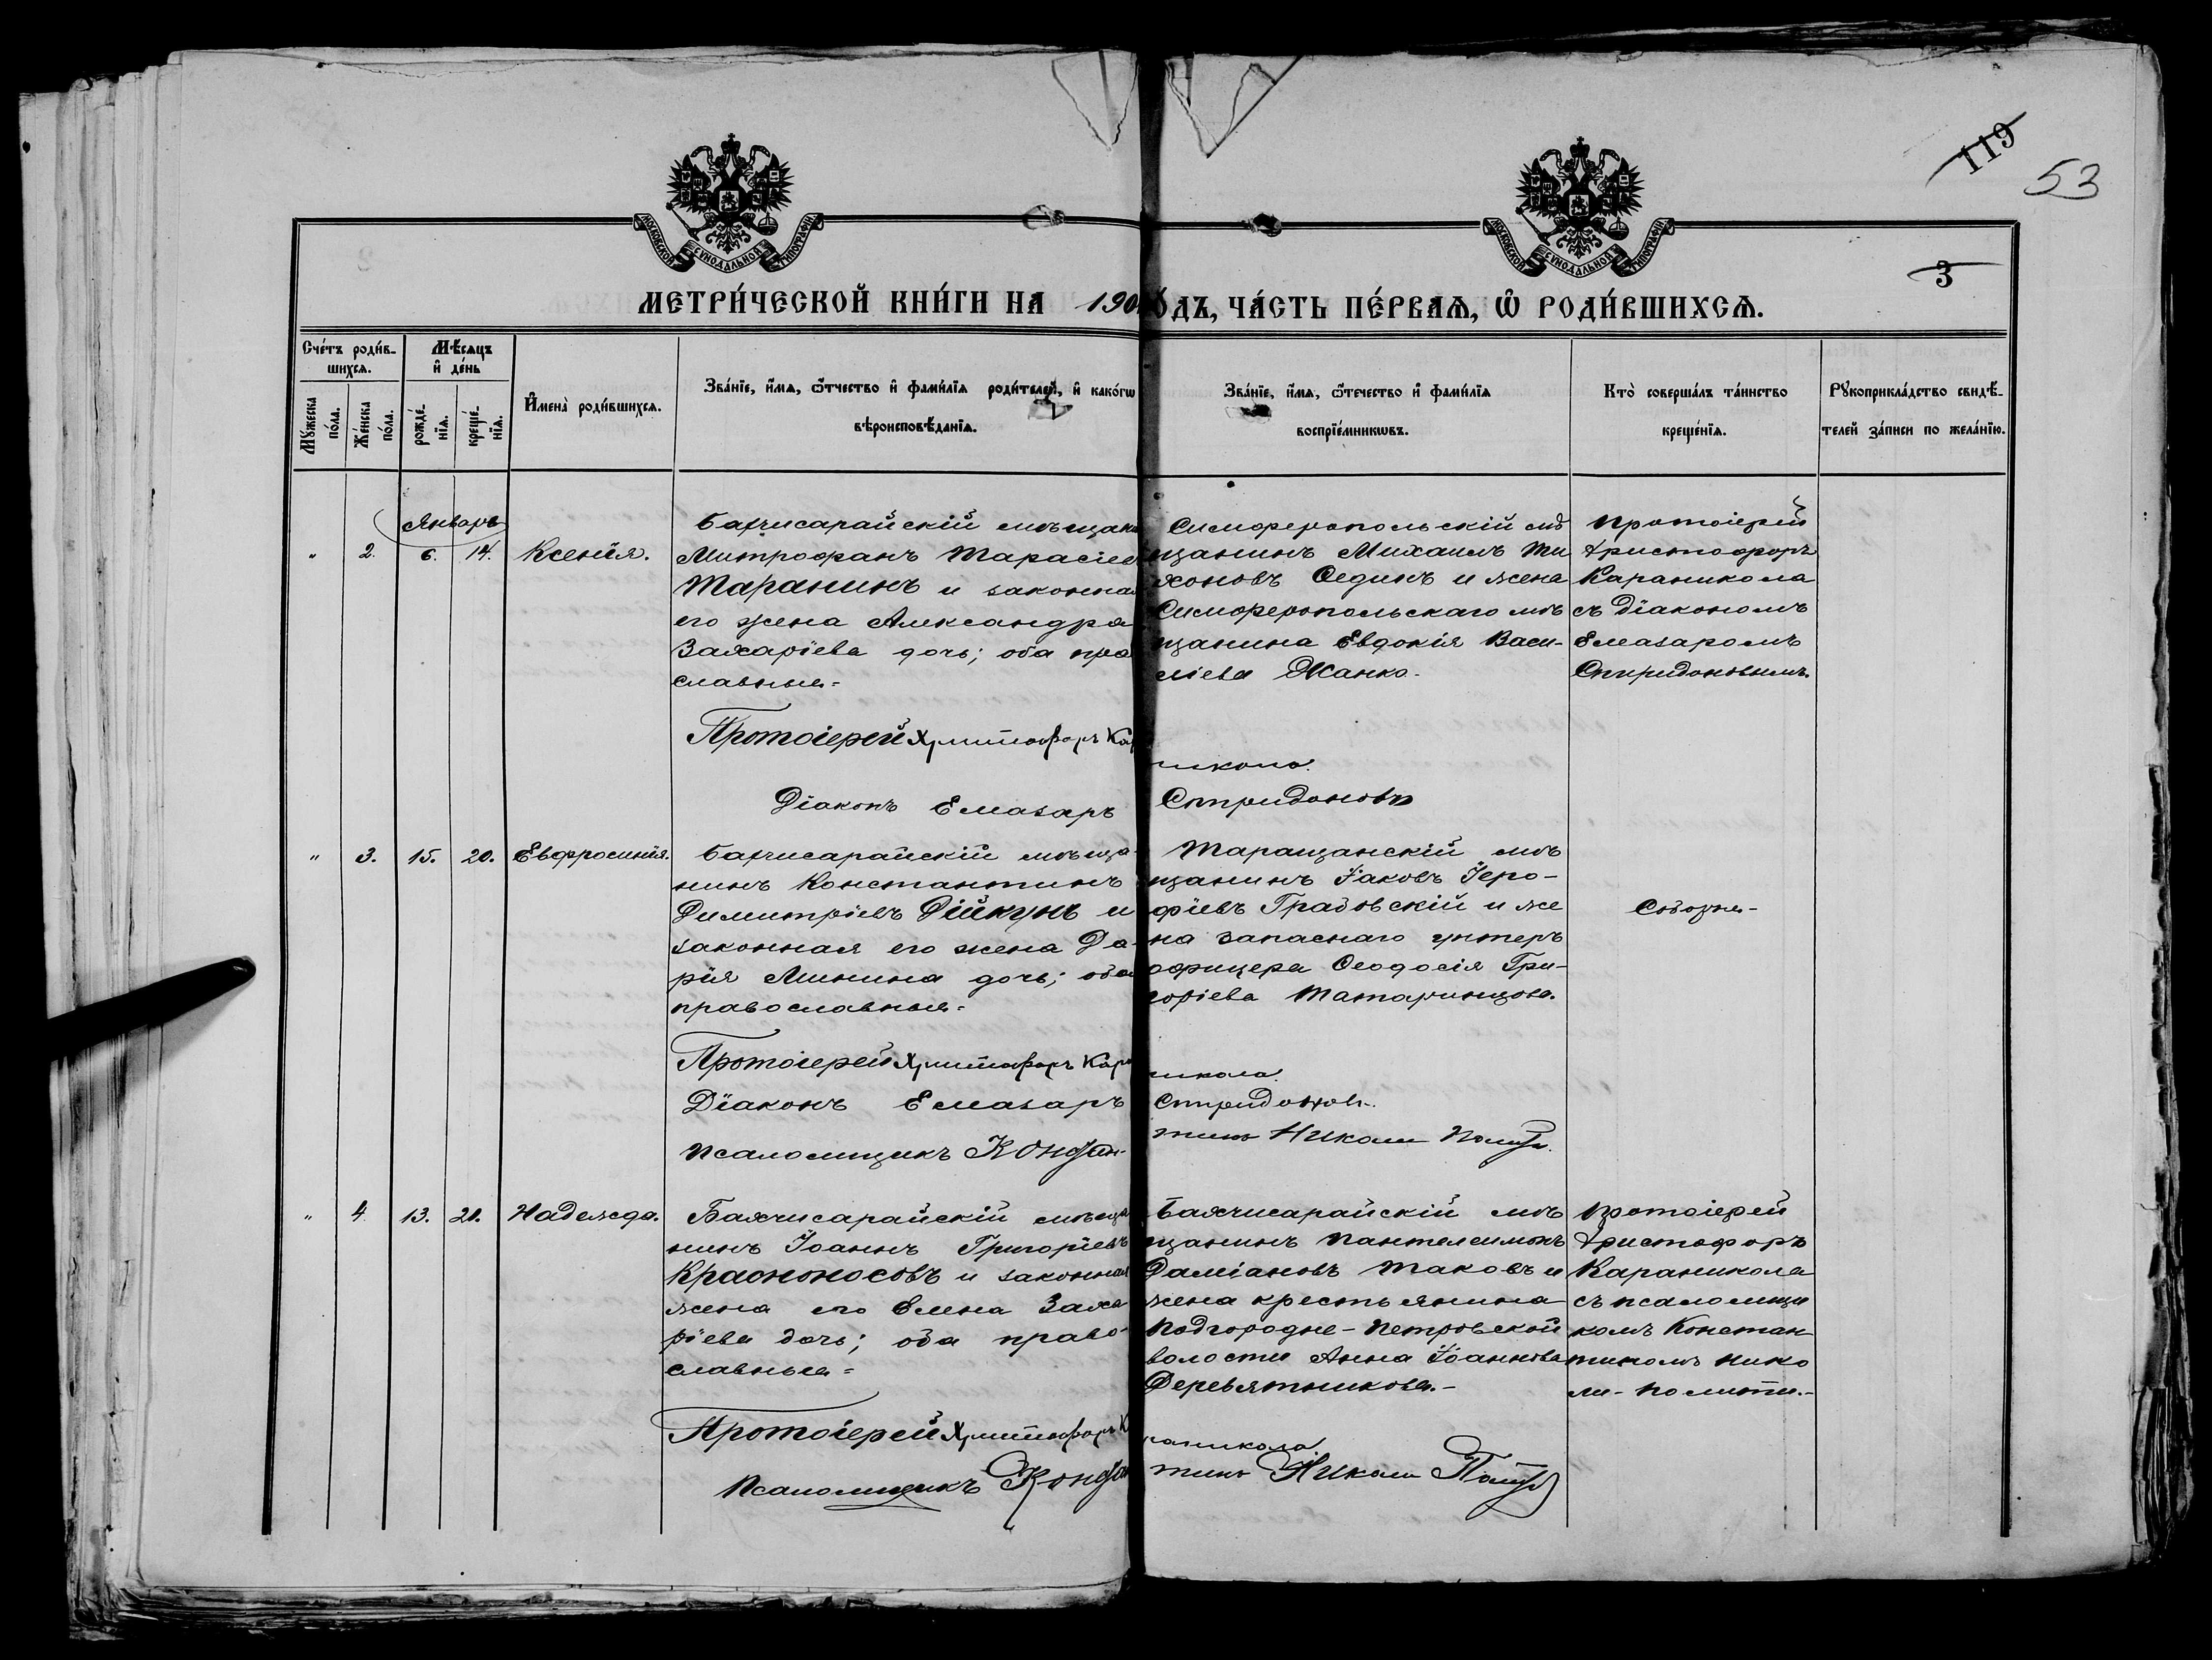 119
53
3
МОСКОВСКОЙ СѴНОДАЛЬНОЙ ТИПОГРАФІИ
МОСКОВСКОЙ СѴНОДАЛЬНОЙ ТИПОГРАФІИ
МЕТРИ́ЧЕСКОЙ КНИ́ГИ НА 190
О́ДЪ, ЧА́СТЬ ПЕ́РВАѦ, Ѡ҆ РОДИ́ВШИХСѦ.
Сче́тъ роди́в-
шихсѧ.
Мѣ́сѧцъ
и҆ де́нь
Мꙋ́жеска
по́ла.
Же́нска
по́ла.
рожде́-
нїѧ.
креще́-
нїѧ.
И҆мена̀ роди́вшихсѧ.
Зва́нїе, и҆́мѧ, ѻ҆́тчество и҆ фами́лїѧ роди́телей, и҆ како́гѡ
вѣроисповѣ́данїѧ.
Зва́нїе, и҆́мѧ, ѻ҆́течество и҆ фами́лїѧ
воспрїе́мникѡвъ.
Кто̀ соверша́лъ та́инство
креще́нїѧ.
Рꙋкоприкла́дство свидѣ́-
телей за́писи по жела́нїю.
Январь
" 2. 6. 14. Ксенія.
Бахчисарайскій мѣщан
Митрофанъ Тарасіев
Таранинъ и законная
его жена Александра
Захаріева дочь; оба пра
славные.=
Симферопольскій мѣ
щанинъ Михаилъ Ти
хоновъ Сединъ и жена
Симферопольскаго мѣ
щанина Евдокія Васи-
ліева Жанко.
Протоіерей
Христофоръ
Караникола
съ Діакономъ
Елазаромъ
Спиридоновымъ.
Протоіерей Христофоръ Кар
никола.
Діаконъ Елазаръ Спиридоновъ
" 3. 15. 20. Евфросинія.
Бахчисарайскій мѣща-
нинъ Константинъ
Димитріевъ Дійкунъ и
законная его жена Да-
рія Минина дочь; оба
православные.=
Таращанскій мѣ
щанинъ Іаковъ Іеро-
фіевъ Градовскій и же
на запаснаго унтеръ
офицера Ѳеодосія Гри-
горіева Татаринцова.
Соборне.-
Протоіерей Христофоръ Кара
никола.
Діаконъ Елазаръ Спиридоновъ.
Псаломщикъ Констан-
тинъ Николи Полити.
" 4. 13. 20. Надежда.
Бахчисарайскій мѣща
нинъ Іоаннъ Григоріевъ
Красноносовъ и законная
жена его Елена Заха
ріева дочь; оба право-
славные.=
Бахчисарайскій мѣ
щанинъ Пантелеимонъ
Даміановъ Таковъ и
жена крестьянина
Подгородне-Петровской
волости Анна Іоаннова
Деревятникова.-
Протоіерей
Христофоръ
Караникола
съ псаломщи
комъ Констан
тиномъ Нико
ли-Полити.-
Протоіерей Христофоръ К
раникола.
Псаломщикъ Констан
тинъ Николи Полити